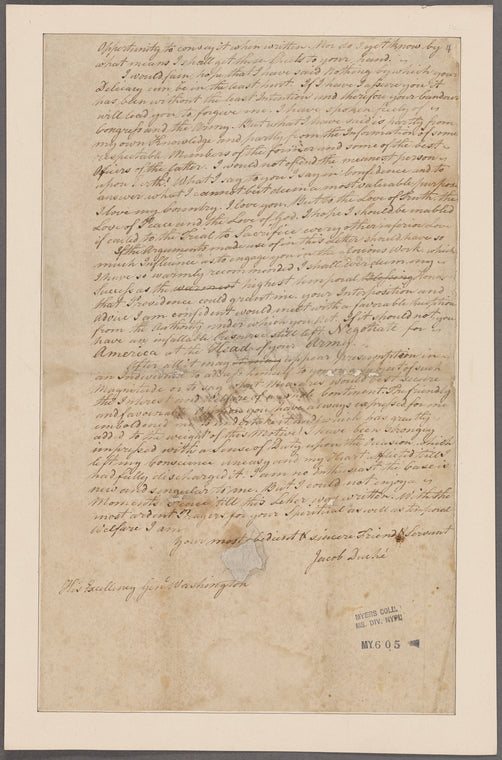 Opportunity to convey it when written. Nor do I yet know by 4
what means I shall get these sheets to your hand.
I would fain hope that I have said nothing by which your
Delicacy can be in the least hurt. If I have I assure you it
has been without the least Intention and therefore your Candour
will lead you to forgive me. I have spoken freely of
Congress and the Army. But what I have said is partly from
my own Knowledge and partly from the Information of some
respectable Members of the former and some of the best
Officers of the latter. I would not offend the meanest person
upon Earth. What I say to you I say in confidence and to
answer what I cannot but deem a most valuable purpose
I love my Country. I love you. But to the Love of Truth, the
Love of Peace and the Love of God, I hope I should be enabled
if called to the Trial to Sacrifice every other inferior Love
If the Arguments made use of in this Letter should have so
much Influence as to engage you in the Glorious Work which
I have so warmly recommended I shall ever deem my
Success as the highest temporal Blessing
that Providence could grant me. Your Interposition and
advice I am confident would meet with a favorable Reception
from the Authority under which you Act. If it should not you
have an infallible Recourse still left. Negotiate for
America at the Head of your Army.
After all it may appear presumption in
an Individual to address himself to you of such
Magnitude or to say what Measures would best Secure
the Interest and Welfare of a whole Continent. The friendly
and favourable you have always expressed for me
emboldened me to undertake it and which has greatly
added to the weight of this Motive I have been strongly
impressed with a Sense of Duty upon the Occasion which
left my Conscience uneasy and my Heart afflicted till I
had fully discharged it. I am no Enthusiast. the Case is
new and singular to me. But I could not enjoy a
Moments Peace till this Letter was written. With the
most ardent Prayers for your Spiritual as well as temporal
Welfare I am
Your most obedient & sincere Friend & Servant
Jacob Duché
His Excellency Genl Washington
MYERS COLL.
MS. DIV. NYPL
MY. 605